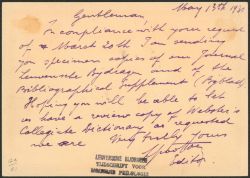 May 13th 19
Gentleman,
In compliance with your request
of March 20th I am sending
you specimen copies of our Journal
Levende and of the
Bibliographical Supplement
Hoping you will be able to let
us have a review copy of Webster's
Collegiate Dictionary as requested
we are Very truly yours
Editor.
TIJDSCHRIFT VOOR